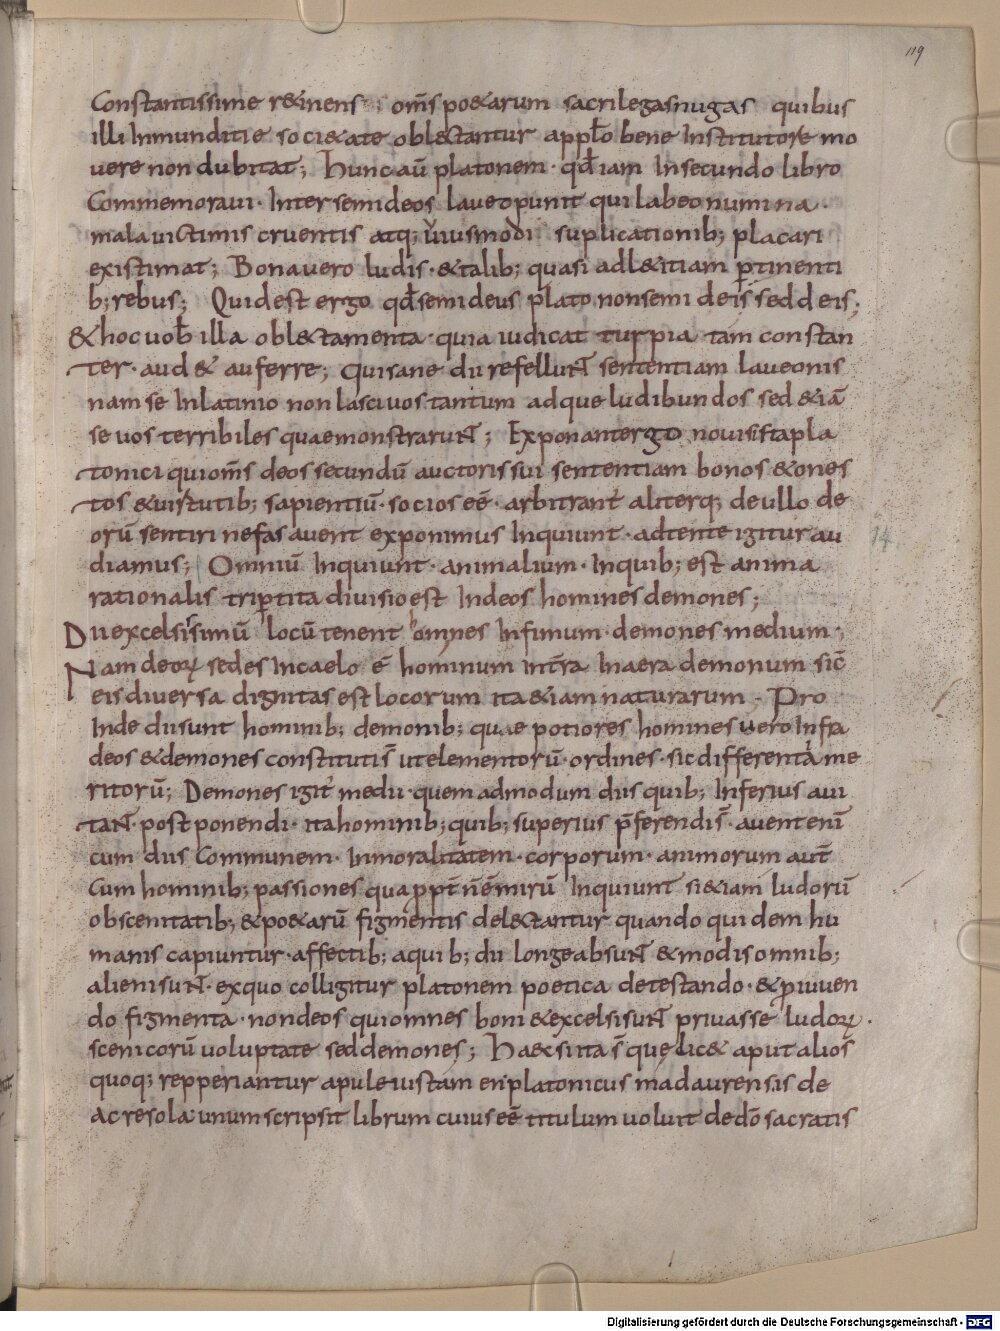 119
Constantissime r&inens; om̄s po&arum sacrilegas nugas quibus
illi Inmunditie soci&ate obl&tantur app̄lo bene Institutore mo
vere non dubitat; hunc aū platonem · qđ iam In secundo libro
Commemoravi · Inter semideos laueo punit qui labeo numina
mala uictimis cruentis atq; huiusmodi suplicationib; placari
existimat; Bona uero ludis · & talib; quasi ad l&itiam ꝑtinenti
b; rebus; Quid est ergo qđ semideus plato non semideis sed deis;
& hoc uob̄ illa obl&tamenta · quia iudicat turpia tam constan
ter · aud& auferre; Qui sane dii refellunt sententiam laueonis
nam se In latinio non lasciuos tantum adque ludibundos sed &iā
se uos terribiles quae monstrarunt; Exponant ergo nouis ista pla
tonici qui om̄s deos secundū auctoris sui sententiam bonos & ones
tos & uirtutib; sapientiū · socios eē · arbitrant aliterq; de ullo de
orū sentiri nefas auent exponimus Inquiunt · adtente igitur au
diamus; Omniū Inquiunt · animalium · Inquib; est anima
rationalis tripertita diuisio est In deos homines demones;
Dii excelsissimū locū tenent omnes Infimum · demones medium ·;
Nam deorum sedes In caelo ē hominum In t̄ra In aera demonum sic̄
eis diuersa dignitas est locorum ita &iam naturarum · Pro
Inde dii sunt hominib; demonib; quae potiores homines uero Infra
deos & demones constituti s̄ ut elementorū · ordines · sic differentia me
ritorū; Demones igit᷑ medii · quem admodum diis quib; Inferius aui
tant · postponendi · ita hominib; quib; superius p̄ferendi s̄ · auent eni
cum diis Communem · Inmoralitatem · corporum · animorum aut̄
Cum hominib; passiones qua propt̄ n̄ ē mirū Inquiunt si &iam ludorū
obscenitatib; & po&arū figmentis del&tantur quando quidem hu
manis capiuntur · affectib; a quib; dii longe absunt & modis omnib;
alieni sunt · ex quo colligitur platonem poetica detestando · & ꝓiuuen
do figmenta · non deos qui omnes boni & excelsi sunt priuasse ludorum ·
scenicorū uoluptate sed demones; Haec si ita s̄ quę lic& aput alios
quoq; repperiantur apuleius tam en platonicus madaurensis de
ac re sola unum scripsit librum cuius eē titulum uoluit de dō sacratis
14.
Digitalisierung gefördert durch die Deutsche Forschungsgemeinschaft - DFG